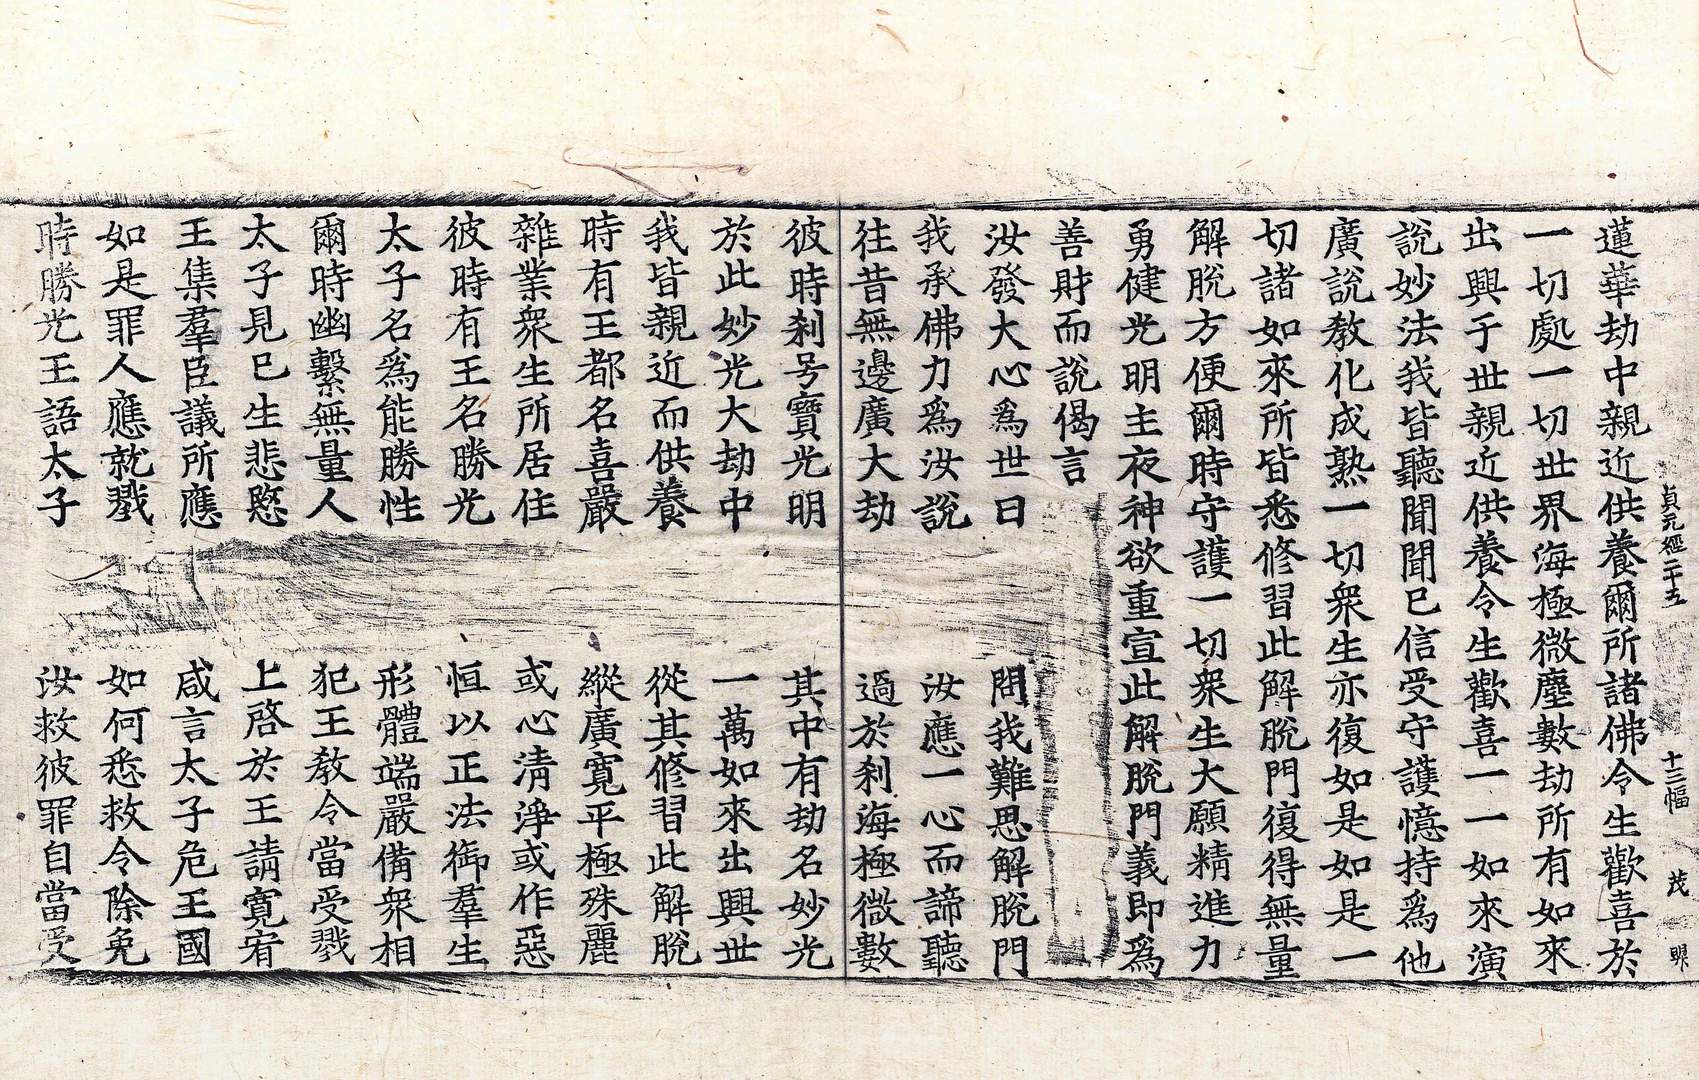 貞元經二十五 十三幅 茂 眀
蓮華劫中親近供養爾所諸佛令生歡喜於
一切處一切世界海極微塵數劫所有如來
出興于世親近供養令生歡喜一一如來演
說妙法我皆聽聞聞已信受守護憶持爲他
廣說教化成熟一切衆生亦復如是如是一
切諸如來所皆悉修習此解脫門復得無量
解脫方便爾時守護一切衆生大願精進力
勇健光明主夜神欲重宣此解脫門義即爲
善財而說偈言
汝發大心爲世日 問我難思解脫門
我承佛力爲汝說 汝應一心而諦聽
往昔無邊廣大劫 過於刹海極微數
彼時刹号寶光明 其中有劫名妙光
於此妙光大劫中 一萬如來出興世
我皆親近而供養 從其修習此解脫
時有王都名喜嚴 縱廣寬平極殊麗
雜業衆生所居住 或心淸淨或作惡
彼時有王名勝光 恒以正法御羣生
太子名爲能勝性 形體端嚴備衆相
爾時幽繫無量人 犯王教令當受戮
太子見已生悲愍 上啓於王請寬宥
王集羣臣議所應 咸言太子危王國
如是罪人應就戮 如何悉救令除免
時勝光王語太子 汝救彼罪自當受